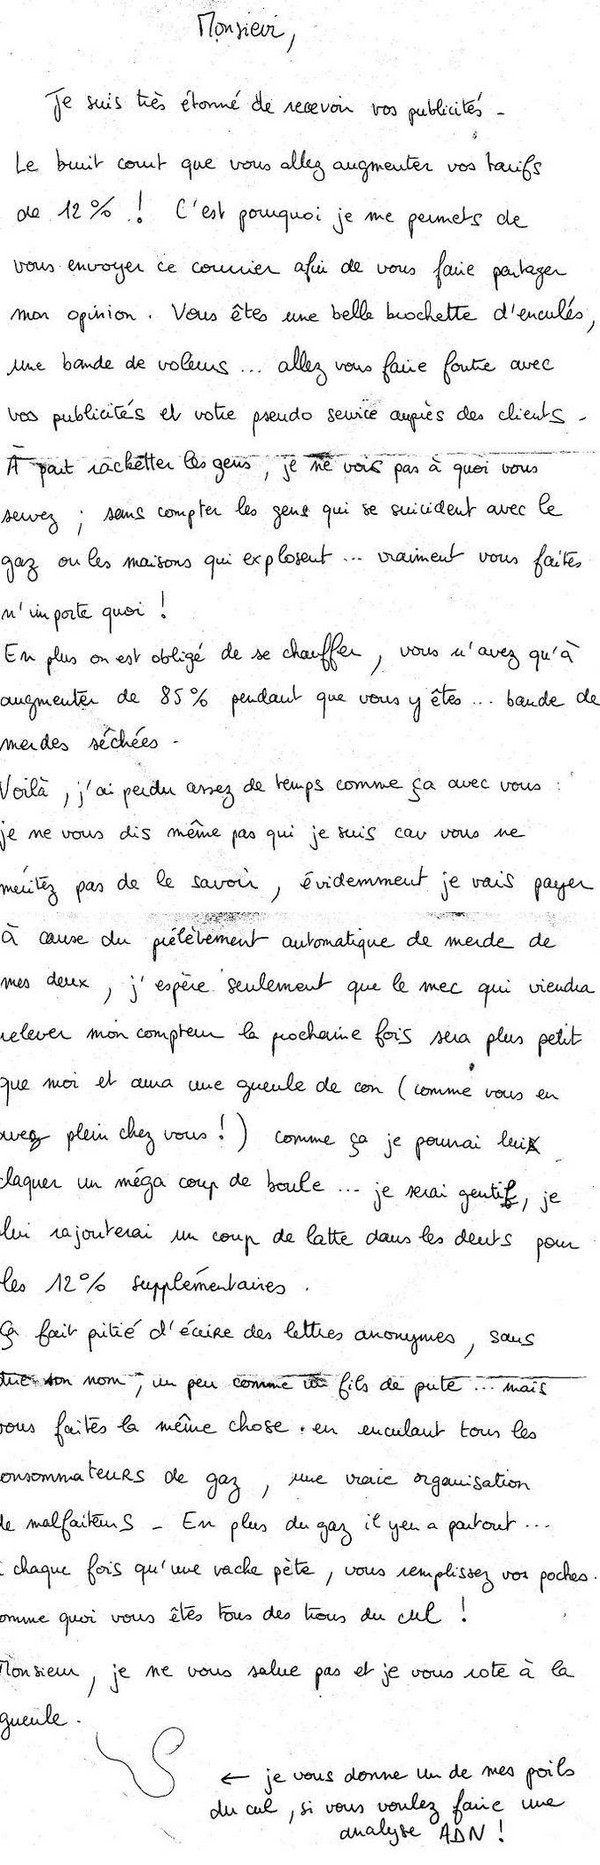 Monsieur,
Je suis très étonné de recevoir vos publicités -
Le bruit court que vous allez augmenter vos tarifs
de 12% ! C'est pourquoi je me permets de
vous envoyer ce courrier afin de vous faire partager
mon opinion. Vous êtes une belle brochette d'enculés,
une bande de voleurs ... allez vous faire foutre avec
vos publicités et votre pseudo service auprès des clients -
À part rachetter les gens, je ne vois pas à quoi vous
servez ; sans compter les gens qui se suicident avec le
gaz ou les maisons qui explosent ... vraiment vous faites
n'importe quoi !
En plus on est obligé de se chauffer, vous n'avez qu'à
augmenter de 85% pendant que vous y êtes ... bande de
merdes séchées -
Voilà, j'ai perdu assez de temps comme ça avec vous :
je ne vous dis même pas qui je suis car vous ne
méritez pas de le savoir, évidemment je vais payer
à cause du prélèvement automatique de merde de
mes deux, j'espère seulement que le mec qui viendra
relever mon compteur la prochaine fois sera plus petit
que moi et aura une gueule de con (comme vous en
avez plein chez vous !) comme ça je pourrai lui
claquer un méga coup de boule ... je serai gentil, je
lui rajouterai un coup de latte dans les dents pour
les 12% supplémentaires .
Ça fait pitié d'écrire des lettres anonymes, sans
dire son nom, un peu comme un fils de pute ... mais
vous faites la même chose . en enculant tous les
onsommateurs de gaz, une vraie organisation
de malfaiteurs - En plus du gaz il y en a partout ...
chaque fois qu'une vache pète, vous remplissez vos poches.
omme quoi vous êtes tous des trous du cul !
Monsieur, je ne vous salue pas et je vous rote à la
gueule .
← je vous donne un de mes poils
du cul, si vous voulez faire une
analyse ADN !